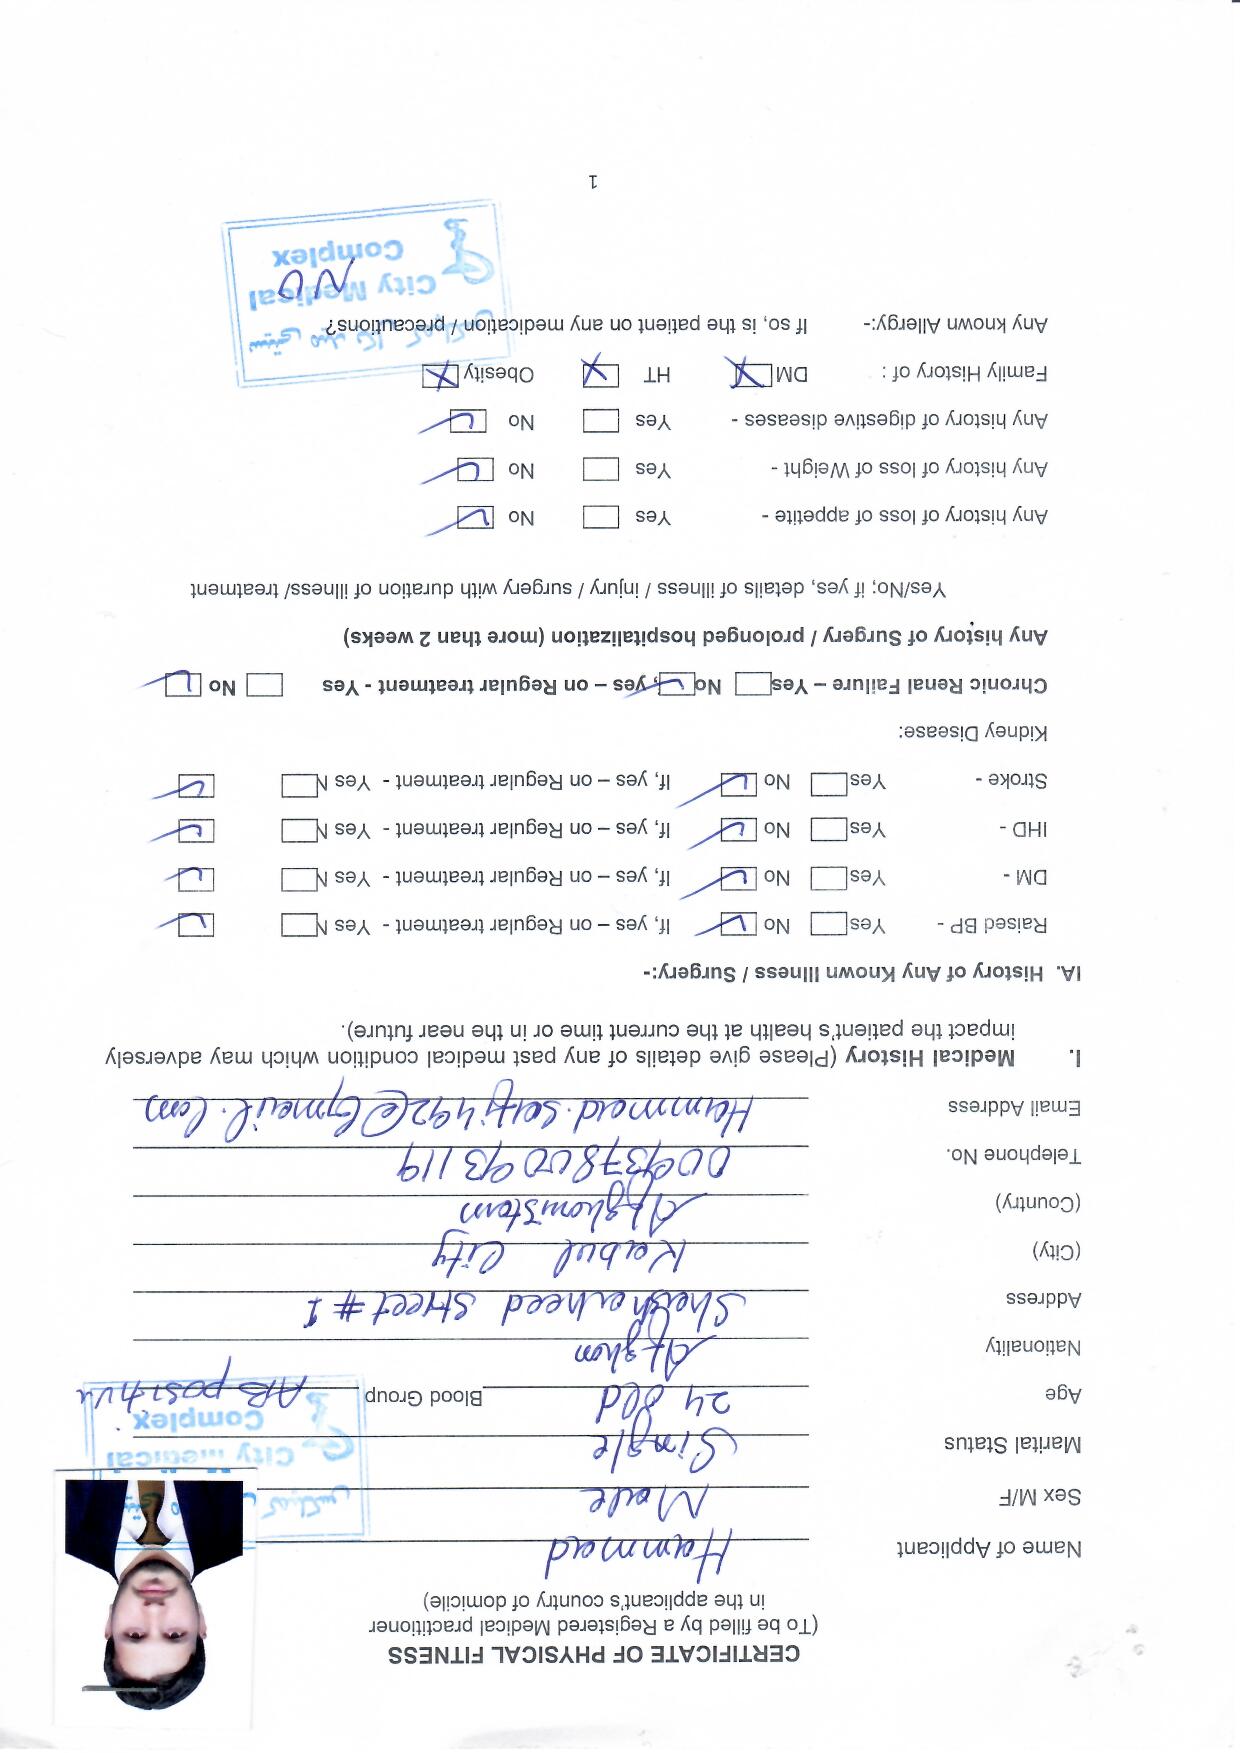 CERTIFICATE OF PHYSICAL FITNESS
(To be filled by a Registered Medical practitioner
in the applicant's country of domicile)
Name of Applicant Hammad
Sex M/F Male
سیتی کمپلکس
Marital Status Single
City Medical
Complex
Age 24 old Blood Group AB positive
Nationality Afghan
Address street # 1
(City) Kabul City
(Country) Afghanistan
Telephone No. 0093780093119
Email Address
I. Medical History (Please give details of any past medical condition which may adversely
impact the patient's health at the current time or in the near future).
IA. History of Any Known Illness / Surgery:-
Raised BP - Yes No If, yes – on Regular treatment - Yes N
DM - Yes No If, yes – on Regular treatment - Yes N
IHD - Yes No If, yes – on Regular treatment - Yes N
Stroke - Yes No If, yes – on Regular treatment - Yes N
Kidney Disease:
Chronic Renal Failure – Yes No , yes – on Regular treatment - Yes No
Any history of Surgery / prolonged hospitalization (more than 2 weeks)
Yes/No; if yes, details of illness / injury / surgery with duration of illness/ treatment
Any history of loss of appetite - Yes No
Any history of loss of Weight - Yes No
Any history of digestive diseases - Yes No
Family History of : DM HT Obesity
سیتی میدیکل کمپلکس
Any known Allergy:- If so, is the patient on any medication / precautions?
City Medical
NO
Complex
1